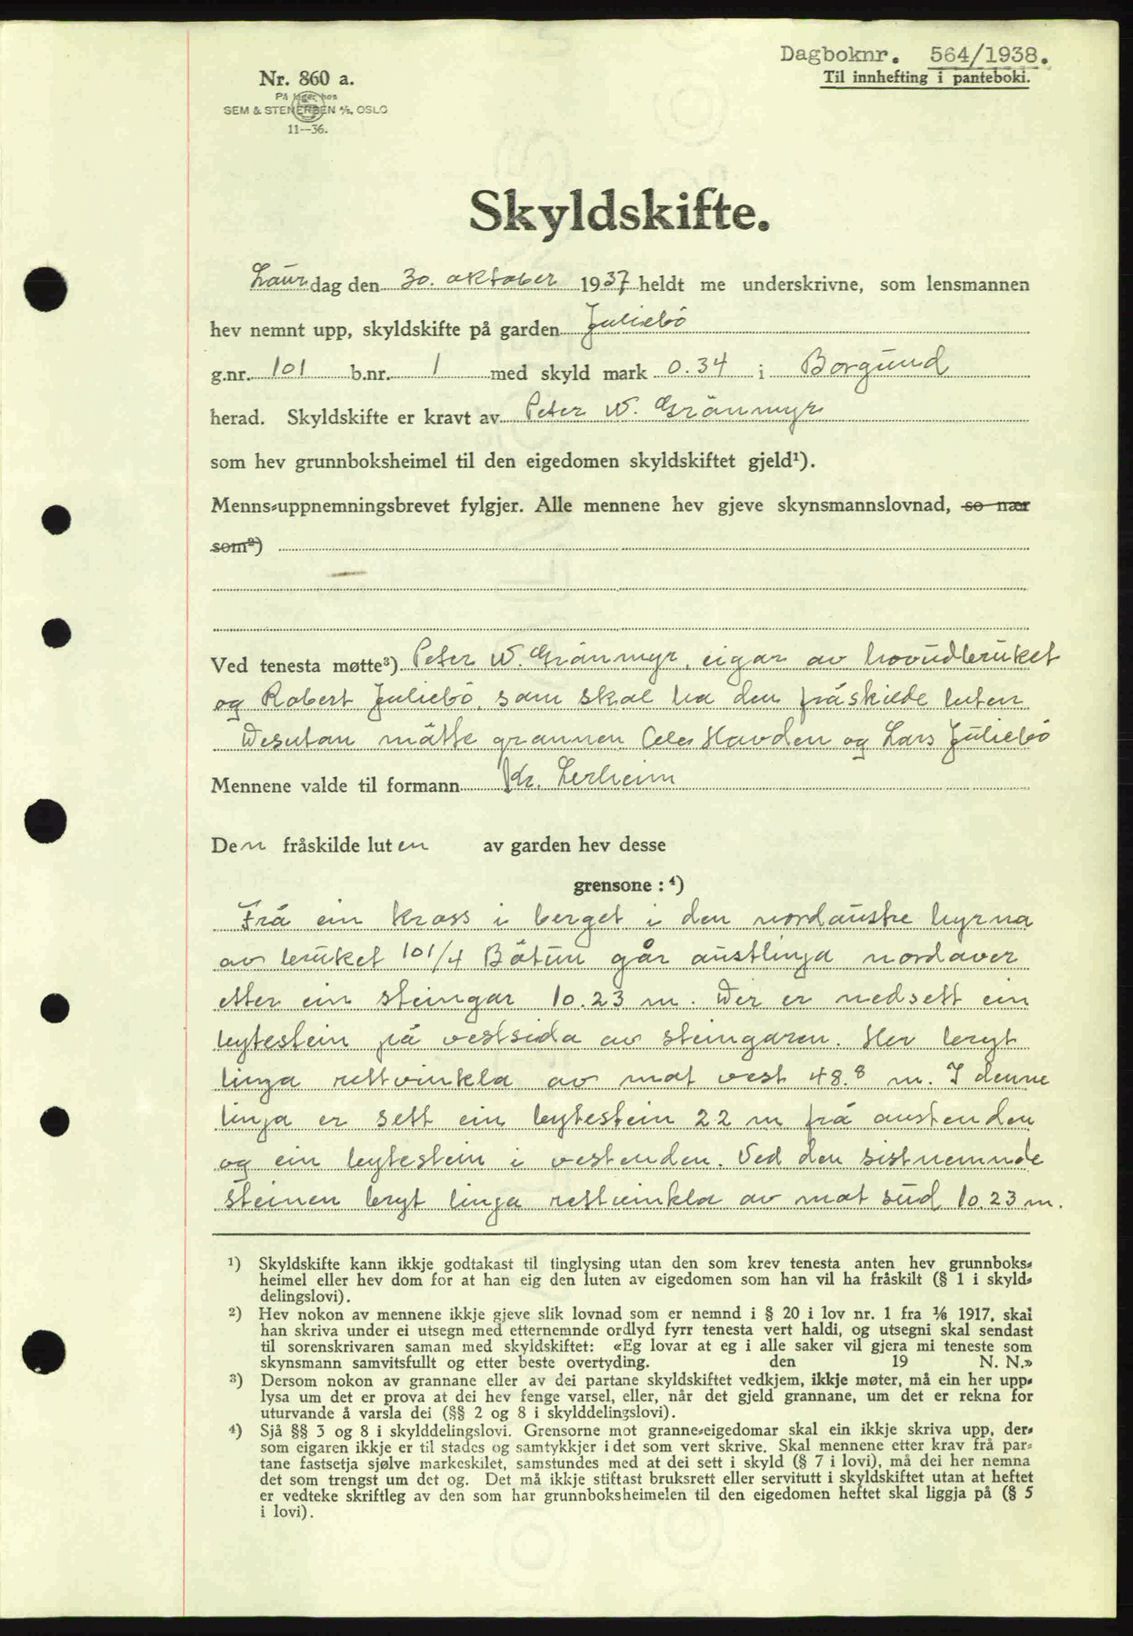 Dagboknr. 564/1938.
Til innhefting i panteboki.
Nr. 860 a.
På lager hos
SEM & STENERSEN A/S, OSLO
11—36.
Skyldskifte.
Laurdag den 30. oktober 1937 heldt me underskrivne, som lensmannen
hev nemnt upp, skyldskifte på garden Juliebö
g.nr. 101 b.nr. 1 med skyld mark 0.34 i Borgund
herad. Skyldskifte er kravt av Peter W. Grånmyr
som hev grunnboksheimel til den eigedomen skyldskiftet gjeld¹).
Menns-uppnemningsbrevet fylgjer. Alle mennene hev gjeve skynsmannslovnad, so nær
som²)
Ved tenesta møtte³) Peter W. Grånmyr, eigar av hovudbruket
og Robert Juliebö, som skal ha den fråskilde luten
Desutan møtte grannen Havden og Lars Juliebö
Mennene valde til formann Kr. Lerheim
Den fråskilde luten av garden hev desse
grensone : ⁴)
Frå ein kross i berget i den nordaustre hyrna
av bruket 101/4 Båtun går austlinja nordover
etter ein steingar 10.23 m. Der er nedsett ein
bytestein på vestsida av steingaren. Her bryt
linja rettvinkla av mot vest 48.8 m. I denne
linja er sett ein bytestein 22 m frå austenden
og ein bytestein i vestenden. Ved den sistnemnde
steinen bryt linja rettvinkla av mot sud 10.23 m.
¹) Skyldskifte kann ikkje godtakast til tinglysing utan den som krev tenesta anten hev grunnboks-
heimel eller hev dom for at han eig den luten av eigedomen som han vil ha fråskilt (§ 1 i skyld-
delingslovi).
²) Hev nokon av mennene ikkje gjeve slik lovnad som er nemnd i § 20 i lov nr. 1 fra ¹/₆ 1917, skal
han skriva under ei utsegn med etternemnde ordlyd fyrr tenesta vert haldi, og utsegni skal sendast
til sorenskrivaren saman med skyldskiftet: «Eg lovar at eg i alle saker vil gjera mi teneste som
skynsmann samvitsfullt og etter beste overtyding. den 19 N. N.»
³) Dersom nokon av grannane eller av dei partane skyldskiftet vedkjem, ikkje møter, må ein her upp-
lysa um det er prova at dei hev fenge varsel, eller, når det gjeld grannane, um det er rekna for
uturvande å varsla dei (§§ 2 og 8 i skylddelingslovi).
⁴) Sjå §§ 3 og 8 i skylddelingslovi. Grensorne mot granne-eigedomar skal ein ikkje skriva upp, der-
som eigaren ikkje er til stades og samtykkjer i det som vert skrive. Skal mennene etter krav frå par-
tane fastsetja sjølve markeskilet, samstundes med at dei sett i skyld (§ 7 i lovi), må dei her nemna
det som trengst um det og. Det må ikkje stiftast bruksrett eller servitutt i skyldskiftet utan at heftet
er vedteke skriftleg av den som har grunnboksheimelen til den eigedomen heftet skal liggja på (§ 5
i lovi).